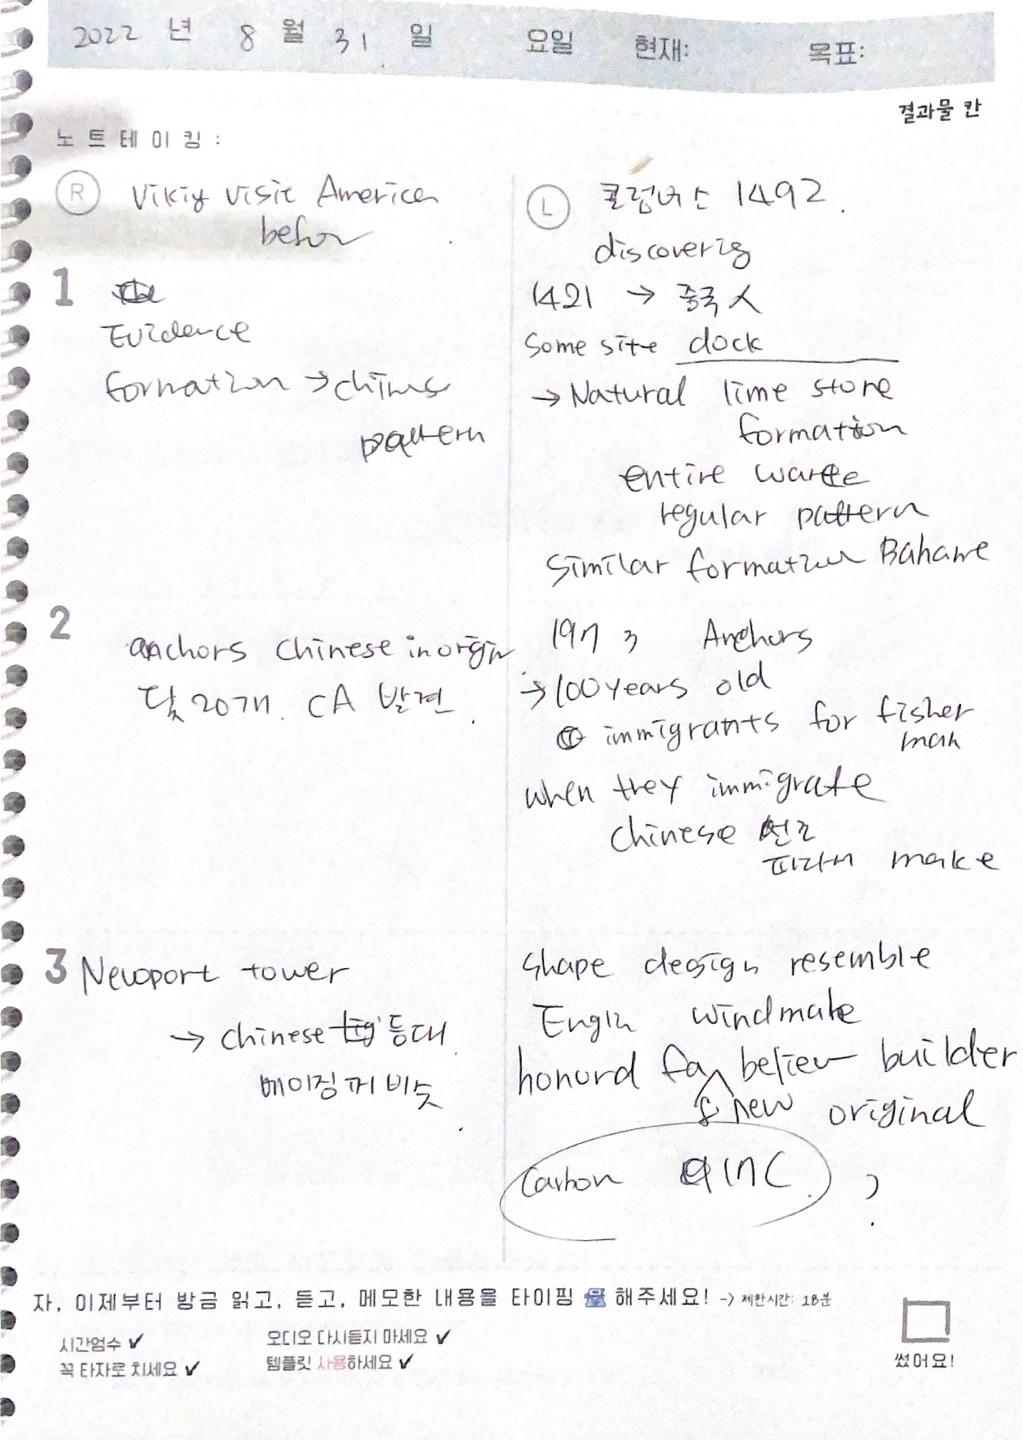 2022 년 8 월 31 일 요일 현재: 목표:
결과물 칸
노트테이킹 :
R Vikiy visit America
befor
1
Evidence
formation → chines
pattern
2
anchors Chinese in orgin
닻 20개. CA 발견.
3 Newport tower
→ Chinese 등대
베이징 꺼 비슷
L 콜럼버스 1492.
discoverig
1421 → 중국人
Some site dock
→ Natural lime store
formation
entire
regular pattern
similar formation Bahame
1973 Anchors
→ 100 years old
immigrants for fisher
man
when they immigrate
Chinese
따라서 make
Shape design resemble
Engln windmake
honord believ builder
new original
Carbon
?
자, 이제부터 방금 읽고, 듣고, 메모한 내용을 타이핑 을 해주세요! -> 제한시간: 18분
시간엄수 ✔ 오디오 다시듣지 마세요 ✔
꼭 타자로 치세요 ✔ 템플릿 사용하세요 ✔
썼어요!